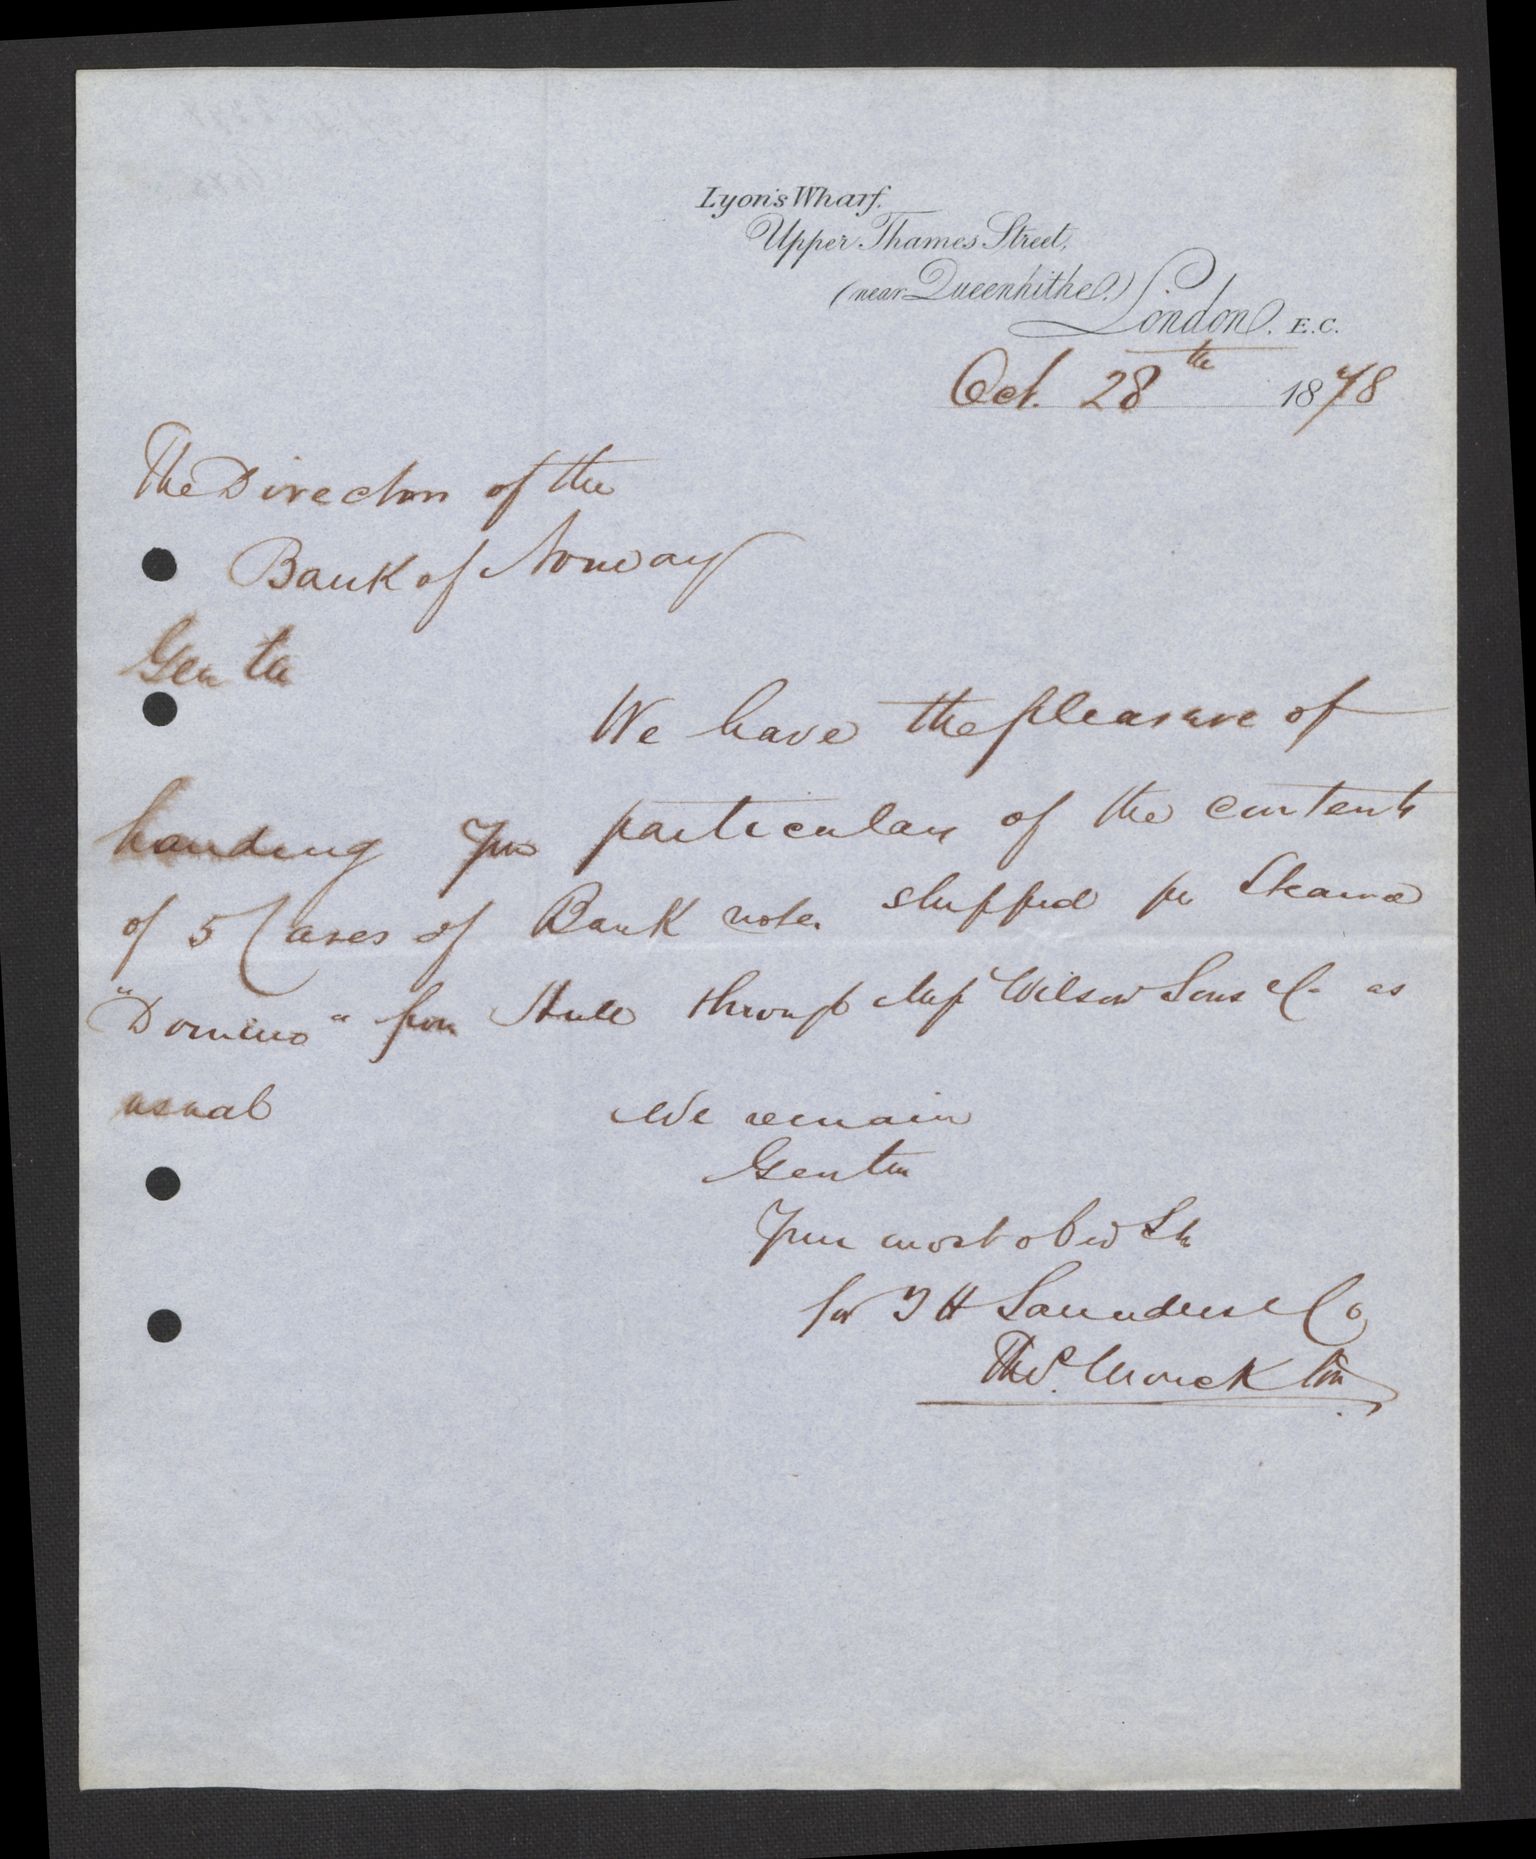 Lyon's Wharf.
Upper Thames Street,
(near Queenhithe.)
London. E.C.
Oct. 28th 1878
The Directors of the
Bank of Norway
Gentn
We have the pleasure of
handing you particulars of the contents
of 5 Cases of Bank notes shipped per Steamer
"Domino" from Hull through Messrs Wilson Sons & Co as
usual
We remain
Gentn
Your most obed St
for T H Saunders & Co
Thos.